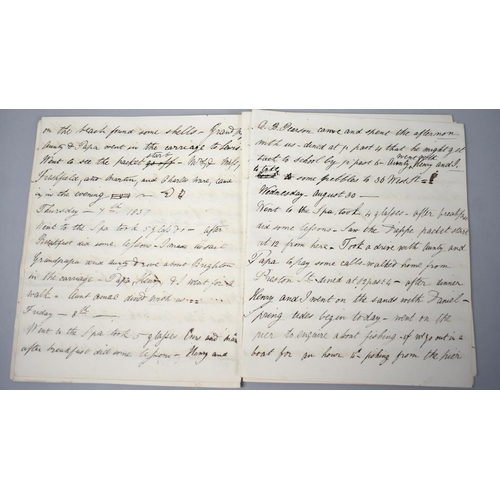 on the beach found some shells - Grand p
Aunty & Papa went in the carriage to
Went to see the packet start
and Charles Ware, came
in in the evening
Thursday - 7th 1837
Went to the Spa took 5 glasses - after
Breakfast did some lessons -
Grandpapa and aunty drove about Brighton
in the carriage - Papa, Henry & I went for a
walk - Aunt dined with us
Friday - 8th
Went to the Spa took 5 glasses
after breakfast did some lessons - Henry and
Pearson came and spent the afternoon
with us - dined at ½ past 2 that he might get
back to school by ½ past 4 - Aunty, Henry and I
went with
some pebbles to 36 West St
Wednesday - August 30
Went to the Spa took 4 glasses - after breakfast
did some lessons - Saw the Dieppe packet start
at 12 from here - Took a drive with Aunty and
Papa to pay some calls walked home from
Preston St. dined at past 4 - after dinner
Henry and I went on the sands with
spring tides begin today - went on the
pier to enquire about fishing - if we go out in a
boat for an hour fishing from the pier